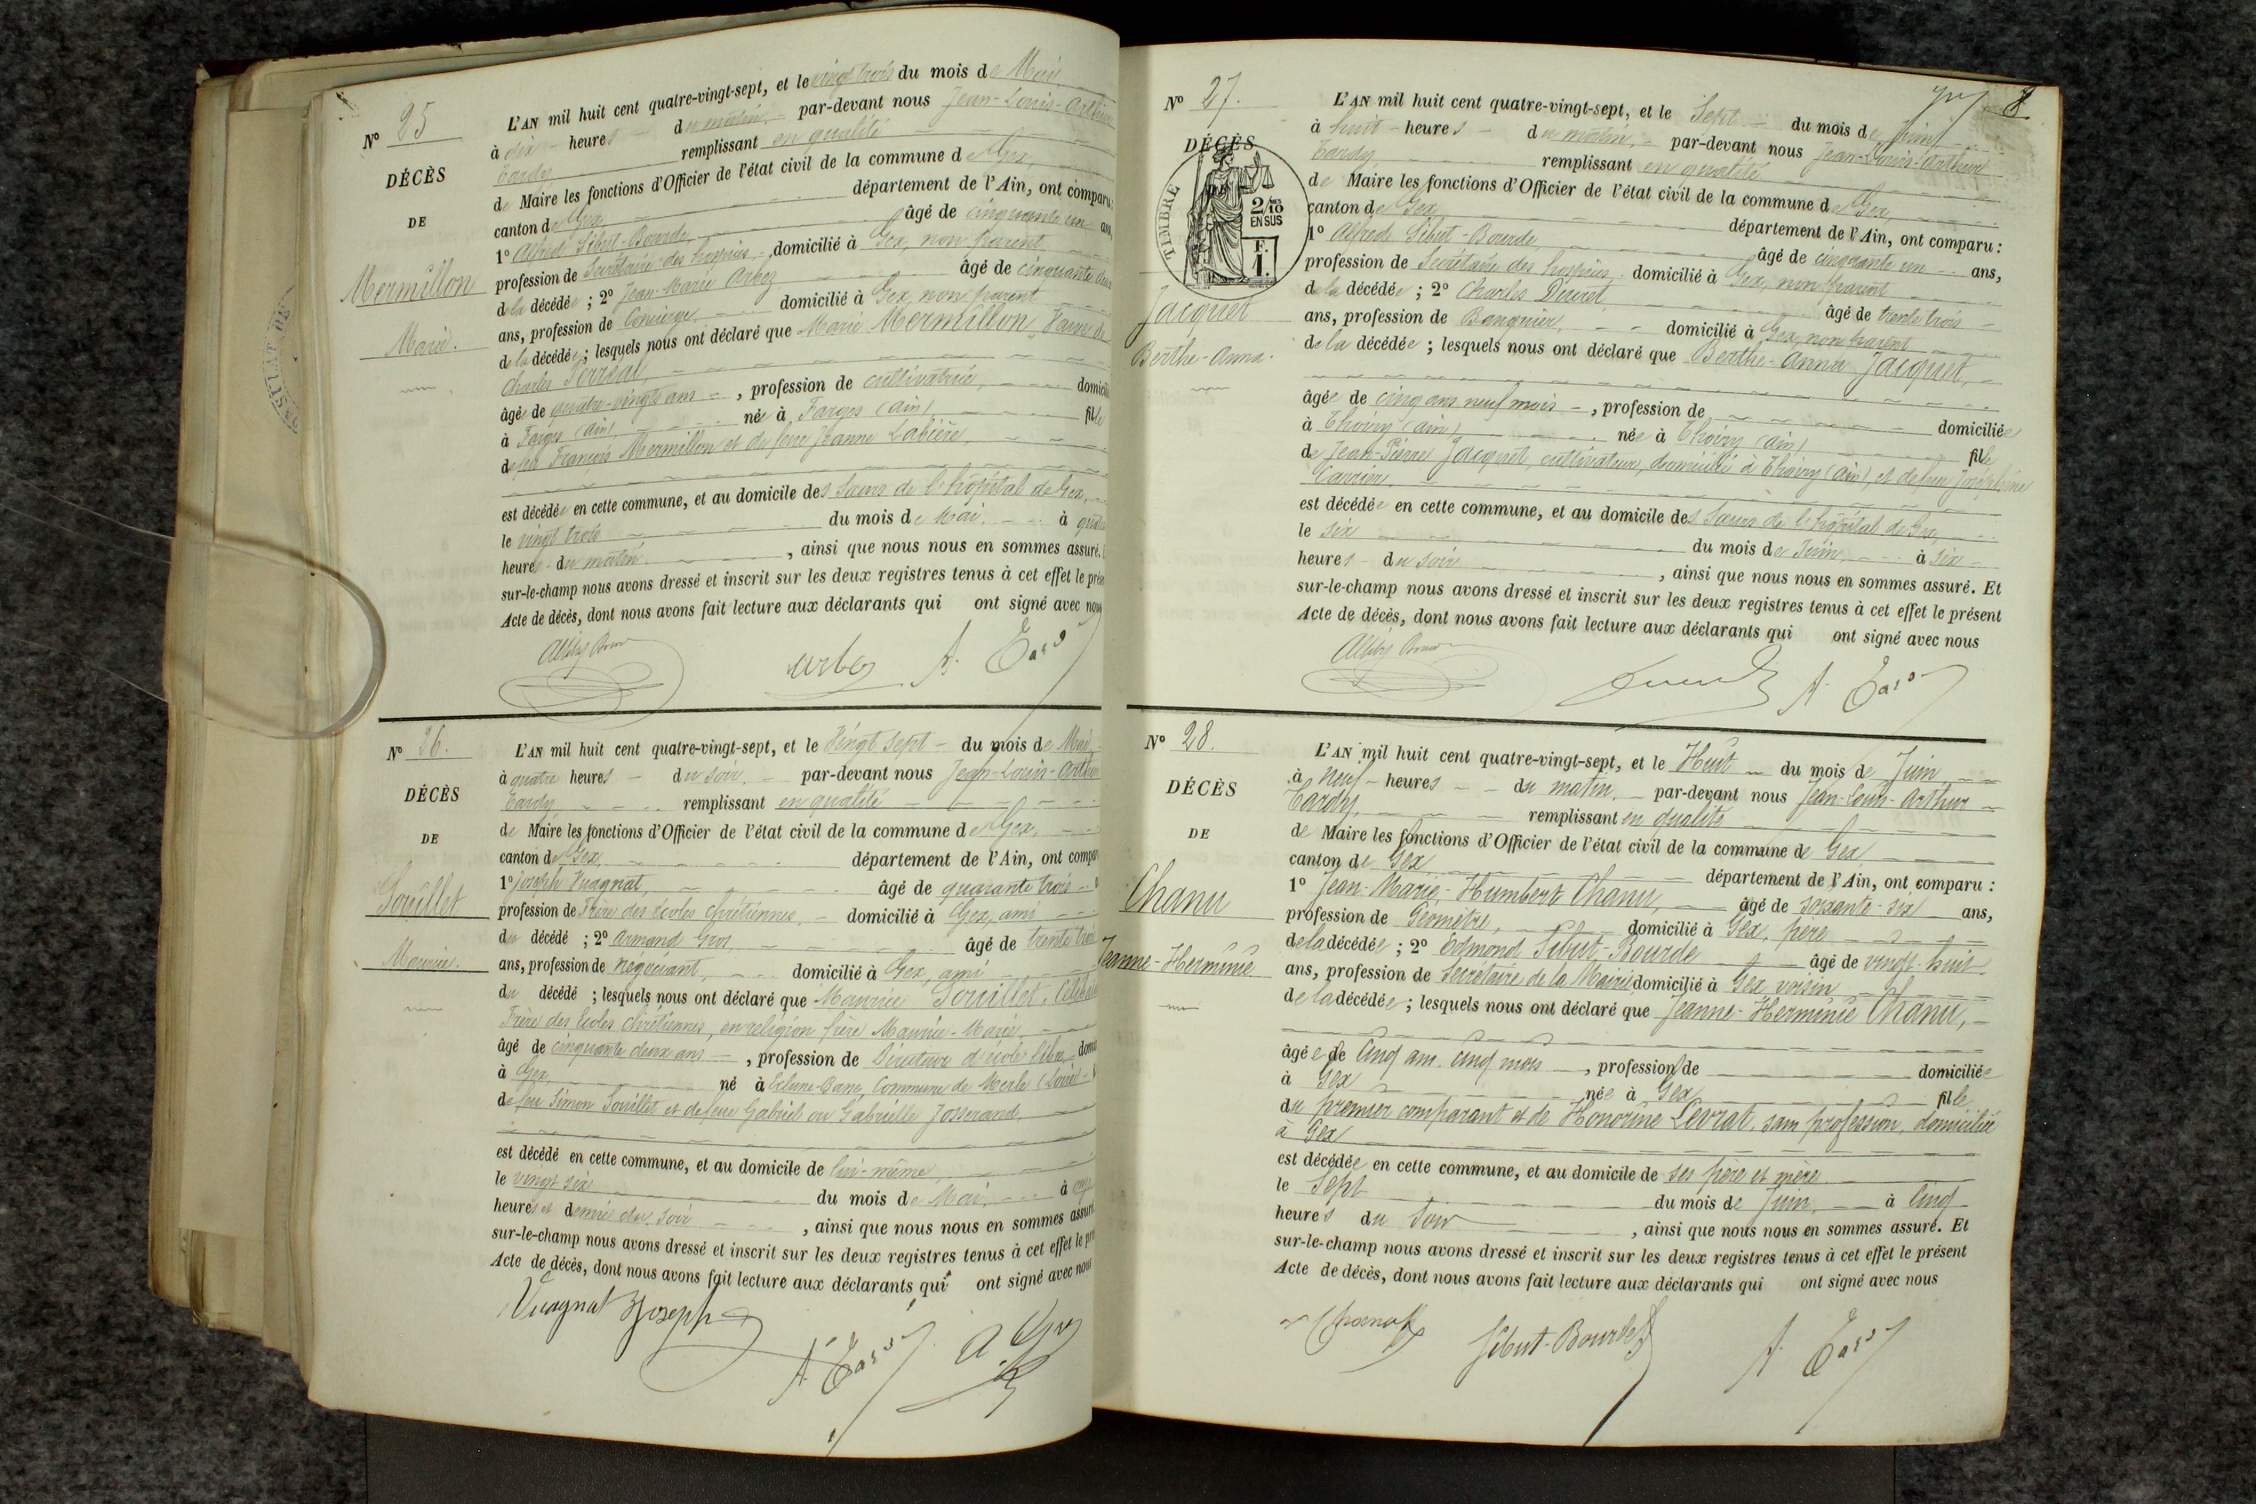 N° 25
DÉCÈS
DE
Mermillon
Marie.
L'AN mil huit cent quatre-vingt-sept, et le vingt trois du mois de Mai
à dix heures du matin, par-devant nous Jean-Louis-Arthur
Tardy remplissant en qualité
de Maire les fonctions d'Officier de l'état civil de la commune de Gex,
canton de Gex département de l'Ain, ont comparu :
1° Alfred Sibut-Bourde, âgé de cinquante un ans,
profession de Secrétaire des hospices, domicilié à Gex, non parent
de la décédée ; 2° Jean-Marie Arbez âgé de cinquante deux
ans, profession de Concierge domicilié à Gex, non parent
de la décédée ; lesquels nous ont déclaré que Marie Mermillon, Veuve de
Charles Perréal,
âgée de quatre-vingts ans, profession de cultivatrice, domicili
à Farges (ain), née à Farges (ain), fille
de feu François Mermillon et de feue Jeanne Labière,
est décédée en cette commune, et au domicile des Sœurs de l'hôpital de Gex,
le vingt trois du mois de Mai, à quatre
heures du matin, ainsi que nous nous en sommes assuré.
sur-le-champ nous avons dressé et inscrit sur les deux registres tenus à cet effet le prése
Acte de décès, dont nous avons fait lecture aux déclarants qui ont signé avec nous
Arbez A. Tardy
N° 26.
DÉCÈS
DE
Souillet
Maurice.
L'AN mil huit cent quatre-vingt-sept, et le Vingt sept du mois de Mai
à quatre heures du soir, par-devant nous Jean-Louis-Arthur
Tardy remplissant en qualité
de Maire les fonctions d'Officier de l'état civil de la commune de Gex,
canton de Gex, département de l'Ain, ont compar
1° Joseph Vuagnat, âgé de quarante trois
profession de Frère des écoles chrétiennes, domicilié à Gex, ami
du décédé ; 2° Armand Gros, âgé de trente trois
ans, profession de négociant, domicilié à Gex, ami
du décédé ; lesquels nous ont déclaré que Maurice Souillet, Célibataire
Frère des Ecoles chrétiennes, en religion frère Maurice-Marie,
âgé de cinquante deux ans, profession de Directeur d'école libre, domi
à Gex, né à Commune de Merle (Loire)
de feu Simon Souillet et de feue Gabriel ou Gabrielle Josserand,
est décédé en cette commune, et au domicile de lui-même,
le vingt six du mois de Mai, à
heures et demie du soir, ainsi que nous nous en sommes assuré.
sur-le-champ nous avons dressé et inscrit sur les deux registres tenus à cet effet le pré
Acte de décès, dont nous avons fait lecture aux déclarants qui ont signé avec nous
Vuagnat Joseph A. Tardy A. Gros
8
N° 27.
DÉCÈS
TIMBRE
2/10
EN SUS
F.
1.
Jacquet
Berthe-Anna.
L'AN mil huit cent quatre-vingt-sept, et le Sept du mois de Juin
à huit heures du matin, par-devant nous Jean-Louis-Arthur
Tardy, remplissant en qualité
de Maire les fonctions d'Officier de l'état civil de la commune de Gex
canton de Gex département de l'Ain, ont comparu :
1° Alfred Sibut-Bourde âgé de cinquante un ans,
profession de Secrétaire des hospices, domicilié à Gex, non parent
de la décédée ; 2° Charles Ducret, âgé de trente trois
ans, profession de Banquier, domicilié à Gex, non parent
de la décédée ; lesquels nous ont déclaré que Berthe-Anna Jacquet,
âgée de cinq ans neuf mois, profession de domiciliée
à Thoiry (ain) née à Thoiry (ain) fille
de Jean-Pierre Jacquet, cultivateur, domicilié à Thoiry (ain), et de feue Joséphine
est décédée en cette commune, et au domicile des Sœurs de l'hôpital de Gex,
le six du mois de Juin, à six
heures du soir, ainsi que nous nous en sommes assuré. Et
sur-le-champ nous avons dressé et inscrit sur les deux registres tenus à cet effet le présent
Acte de décès, dont nous avons fait lecture aux déclarants qui ont signé avec nous
A. Tardy
N° 28.
DÉCÈS
DE
Chanu
Jeanne-Herminie
L'AN mil huit cent quatre-vingt-sept, et le Huit du mois de Juin
à Neuf heures du matin, par-devant nous Jean-Louis-Arthur
Tardy, remplissant en qualité
de Maire les fonctions d'Officier de l'état civil de la commune de Gex
canton de Gex département de l'Ain, ont comparu :
1° Jean-Marie-Humbert Chanu, âgé de soixante-six ans,
profession de Géomètre, domicilié à Gex, père
de la décédée ; 2° Edmond Sibut-Bourde âgé de vingt-huit
ans, profession de Secrétaire de la Mairie, domicilié à Gex voisin
de la décédée ; lesquels nous ont déclaré que Jeanne-Herminie Chanu,
âgée de Cinq ans cinq mois, profession de domiciliée
à Gex née à Gex fille
du premier comparant et de Honorine Levrat, sans profession, domiciliée
à Gex
est décédée en cette commune, et au domicile de ses père et mère
le Sept du mois de Juin, à Cinq
heures du soir, ainsi que nous nous en sommes assuré. Et
sur-le-champ nous avons dressé et inscrit sur les deux registres tenus à cet effet le présent
Acte de décès, dont nous avons fait lecture aux déclarants qui ont signé avec nous
Chanu Sibut-Bourde A. Tardy